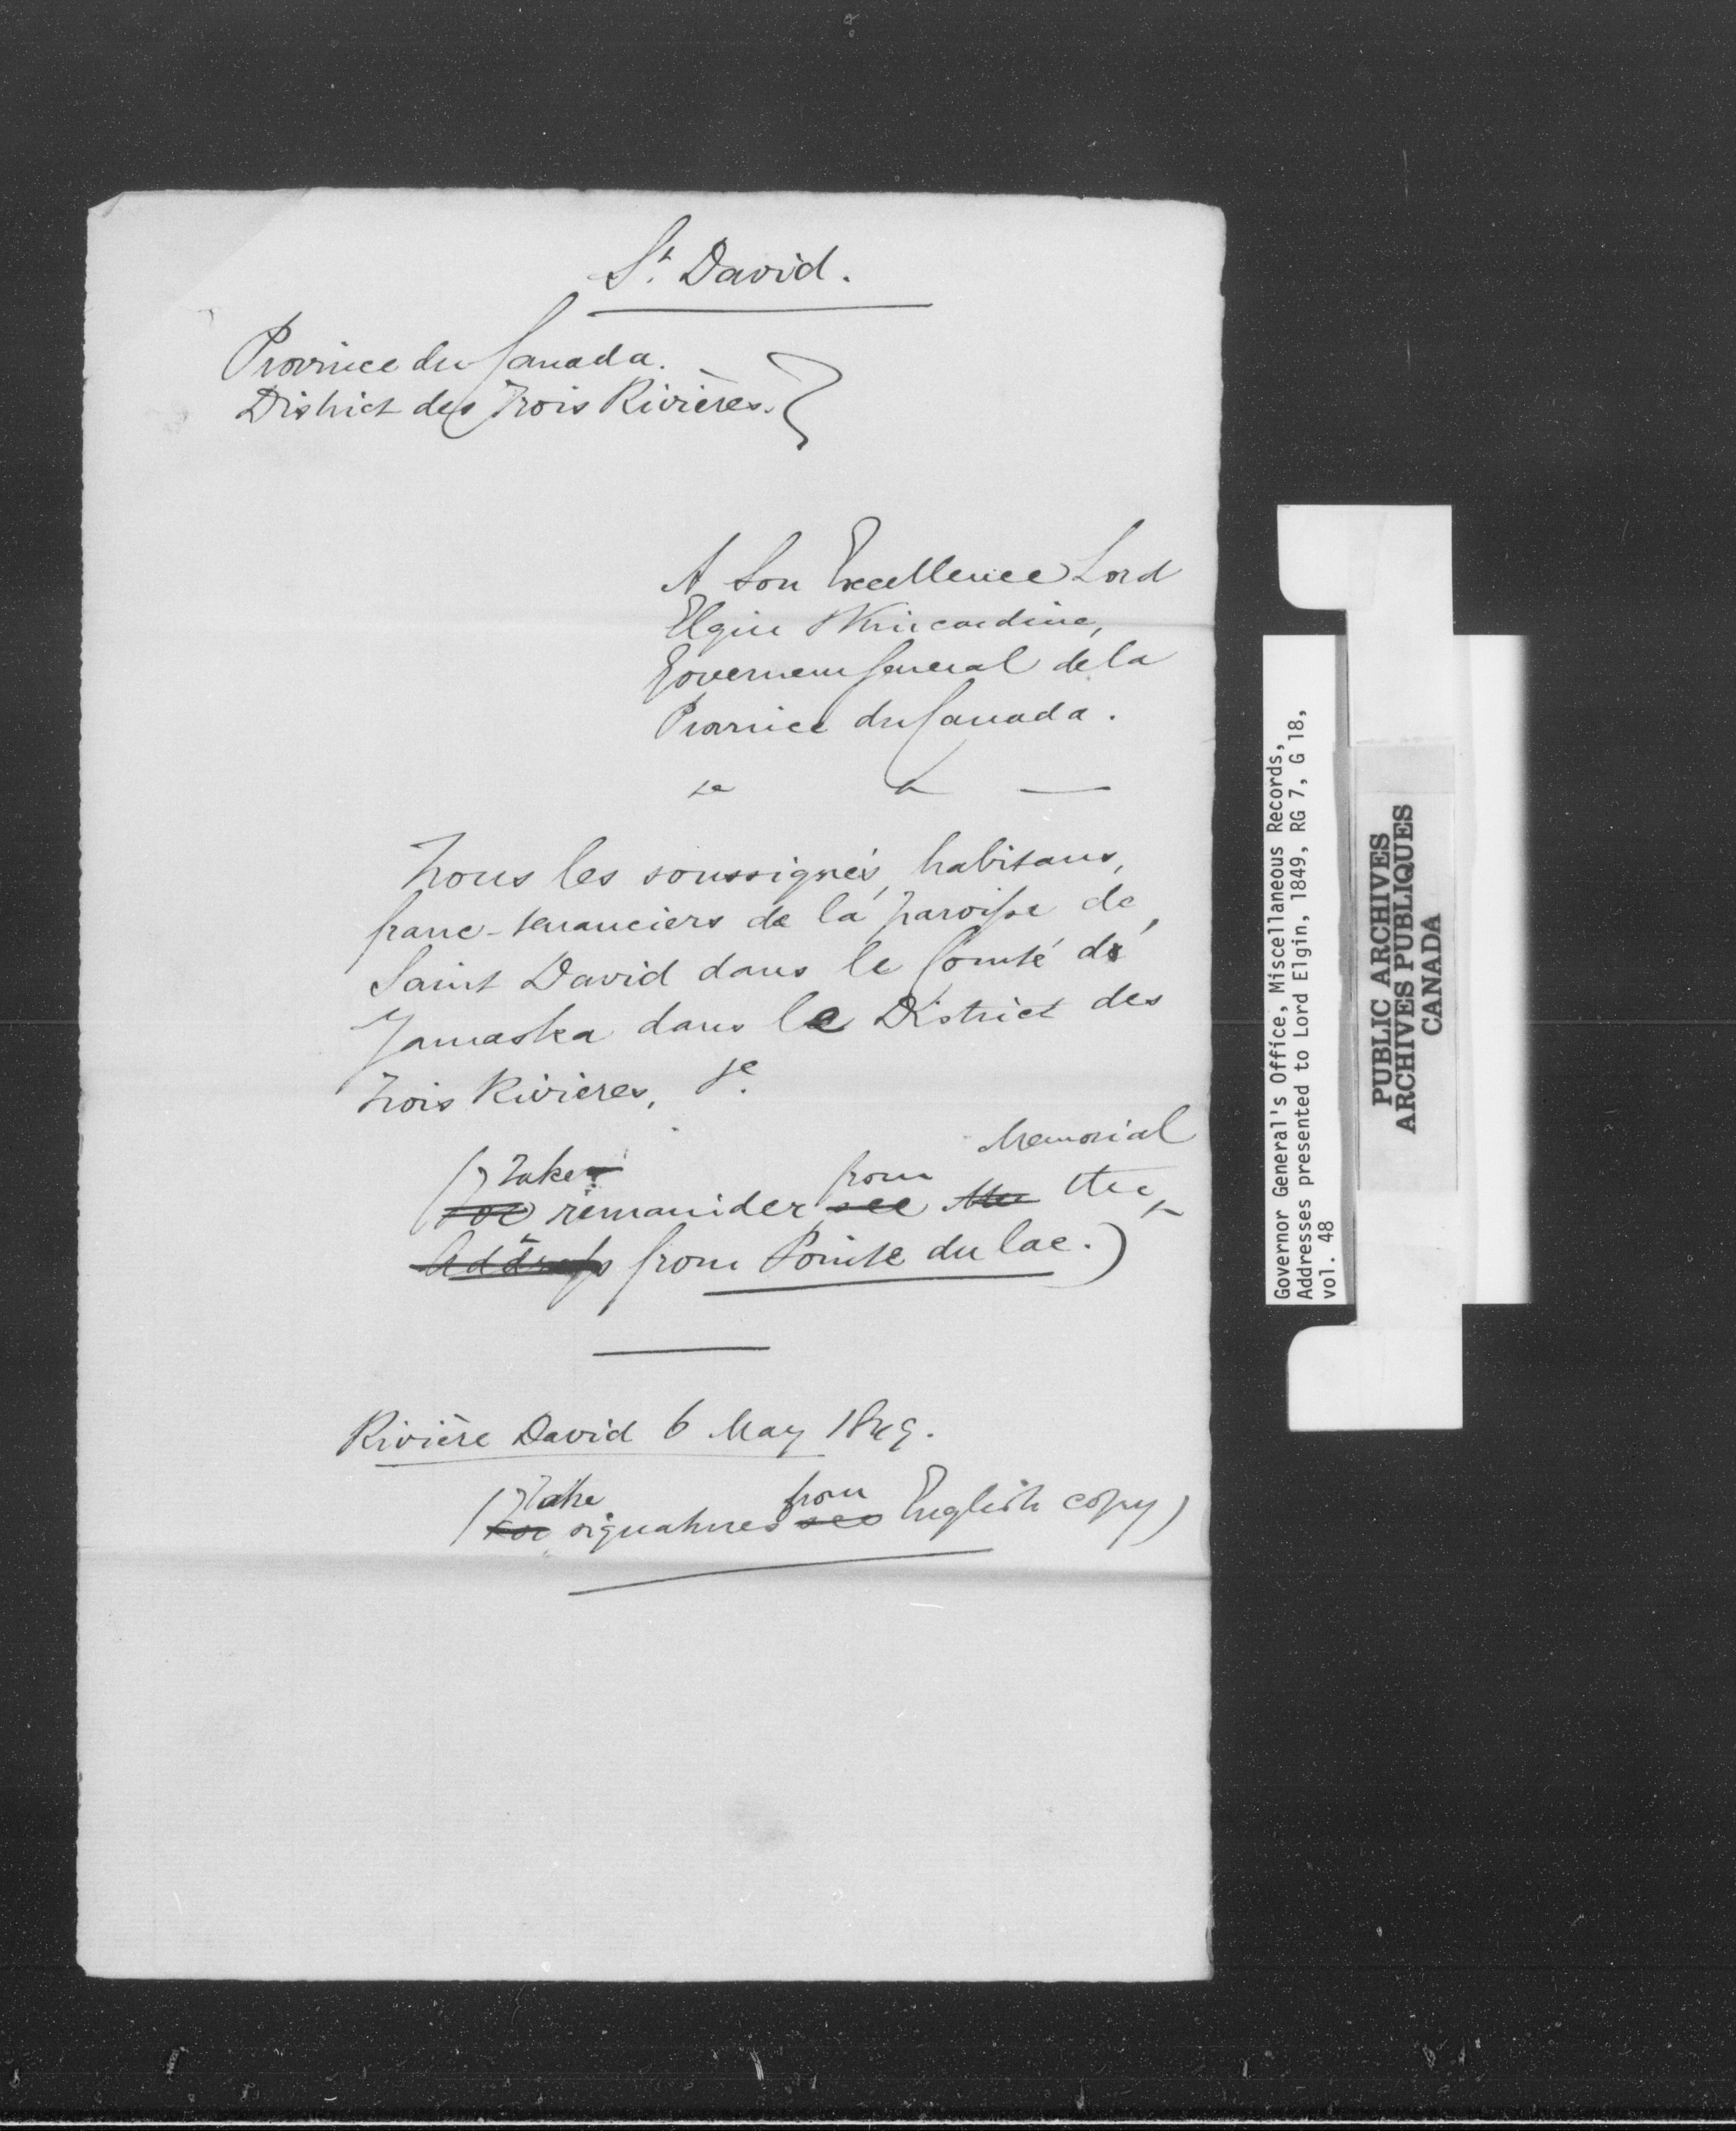 St David.
Province du Canada.
District des Trois Rivières. }
A Son Excellence Lord
Elgin & Kincardine,
Governeur General de la
Province du Canada.
&c & —
Nous les soussignés, habitans,
franc-tenanciers de la paroisse de
Saint David dans le Comté de
Yamaska dans le District des
Trois Rivieres, &c.
Take from Memorial
(For remainder see the
Address from Pointe du lac.)
Rivière David 6 May 1849.
Take from
(For signatures see English copy)
Governor General's Office, Miscellaneous Records,
Addresses presented to Lord Elgin, 1849, RG 7, G 18,
vol. 48
PUBLIC ARCHIVES
ARCHIVES PUBLIQUES
CANADA